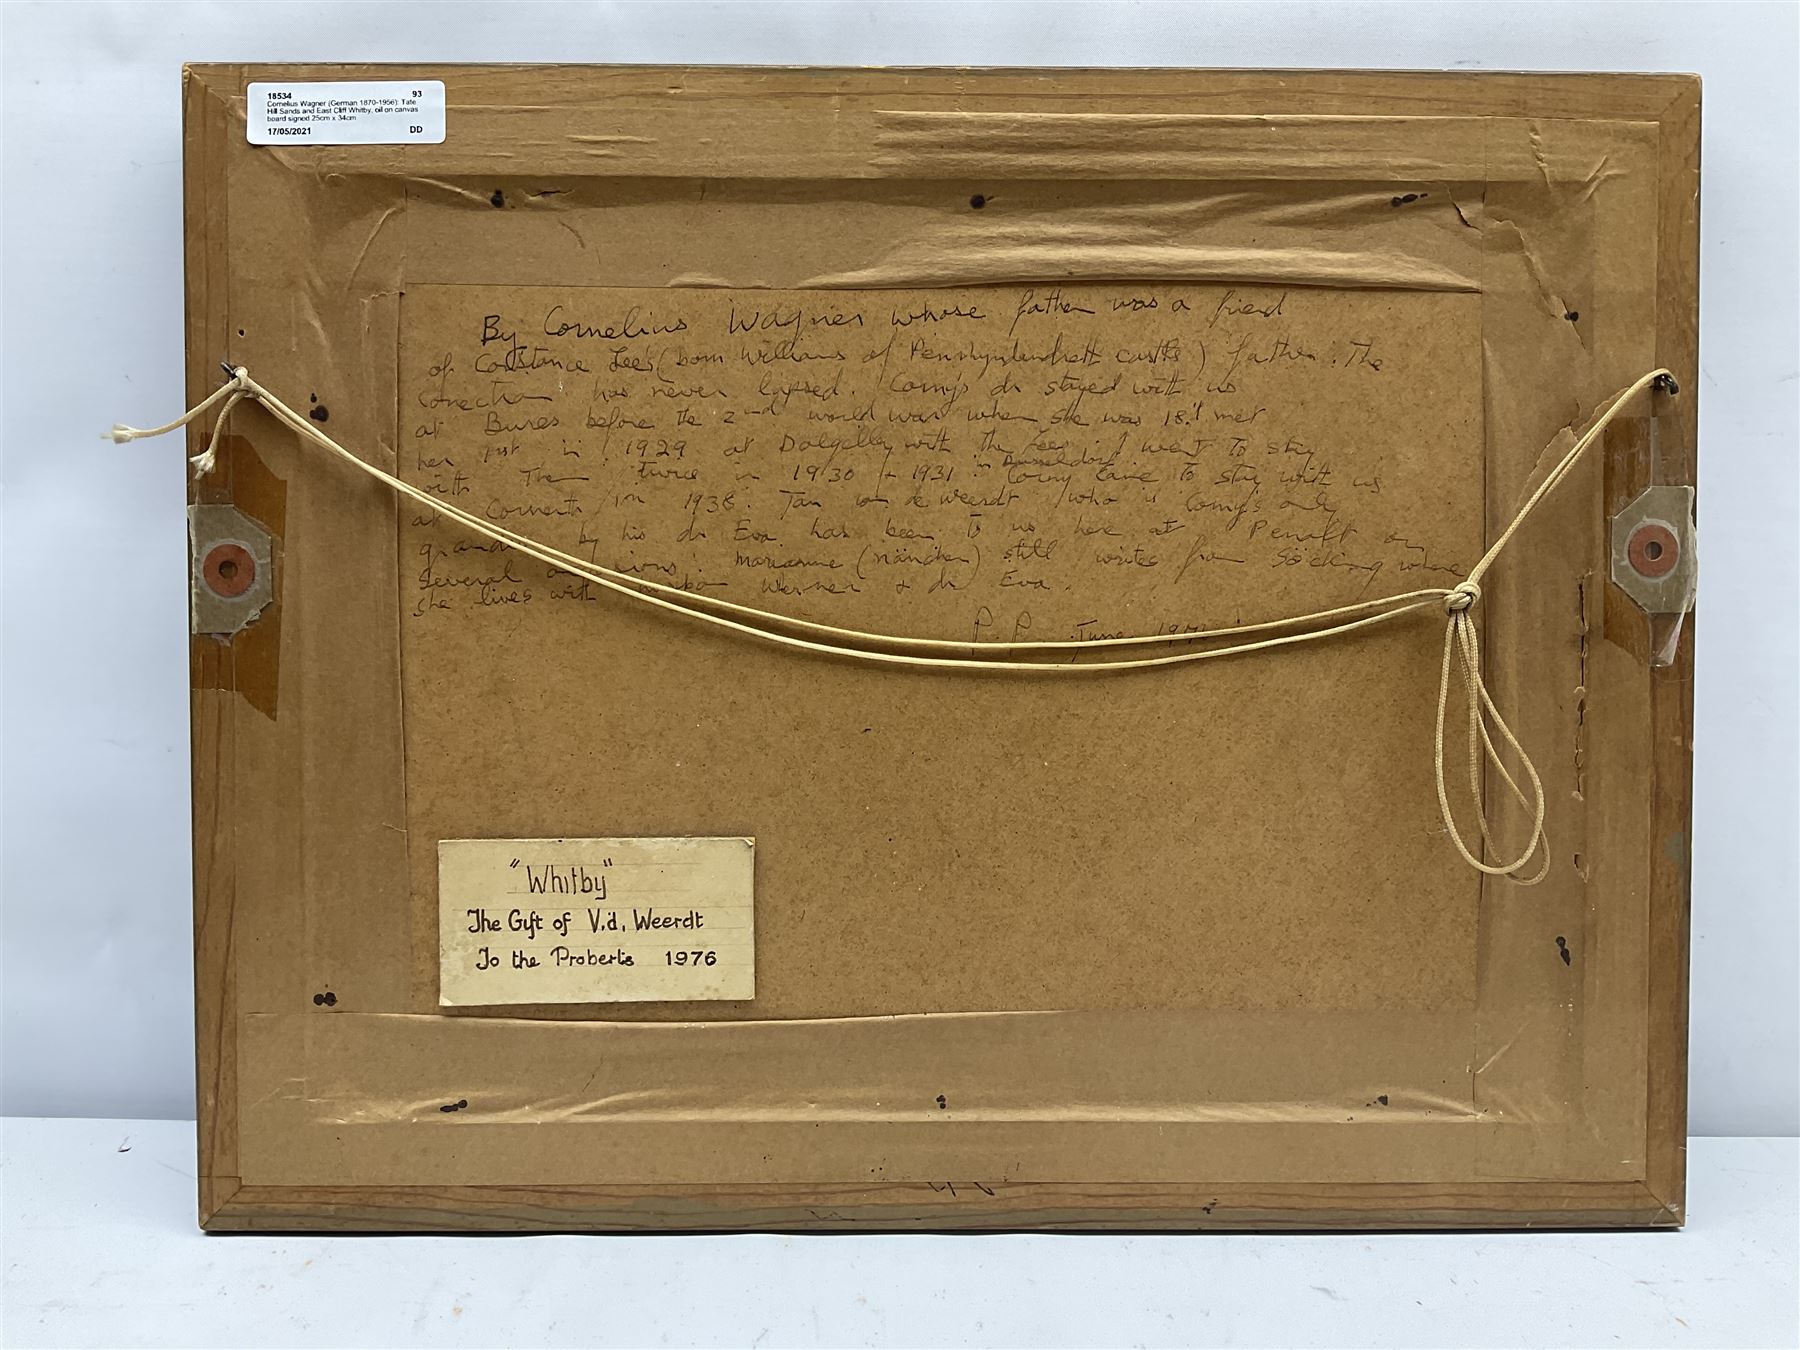 18534 93
Cornelius Wagner (German 1870-1956): Tate
Hill Sands and East Cliff Whitby, oil on canvas
board signed 25cm x 34cm
17/05/2021 DD
By Cornelius Wagner whose father was a friend
of Constance Lee's (born Williams of castle) father. The
conection has never lapsed. Corny's dr stayed with us
at Bures before the 2nd world war when she was 18. I met
her 1st in 1929 at Dolgelley with the Lees. I went to stay
with Them twice in 1930 + 1931 in Dusseldorf Corny came to stay with us
at in 1938. Jan de Weerdt who is Corny's only
by his dr Eva has been to us here at on
several . Marianne (Nänchen) still writes from Söcking where
she lives with Werner & dr Eva.
P.P. June
"Whitby"
The Gift of V.d. Weerdt
To the Proberts 1976